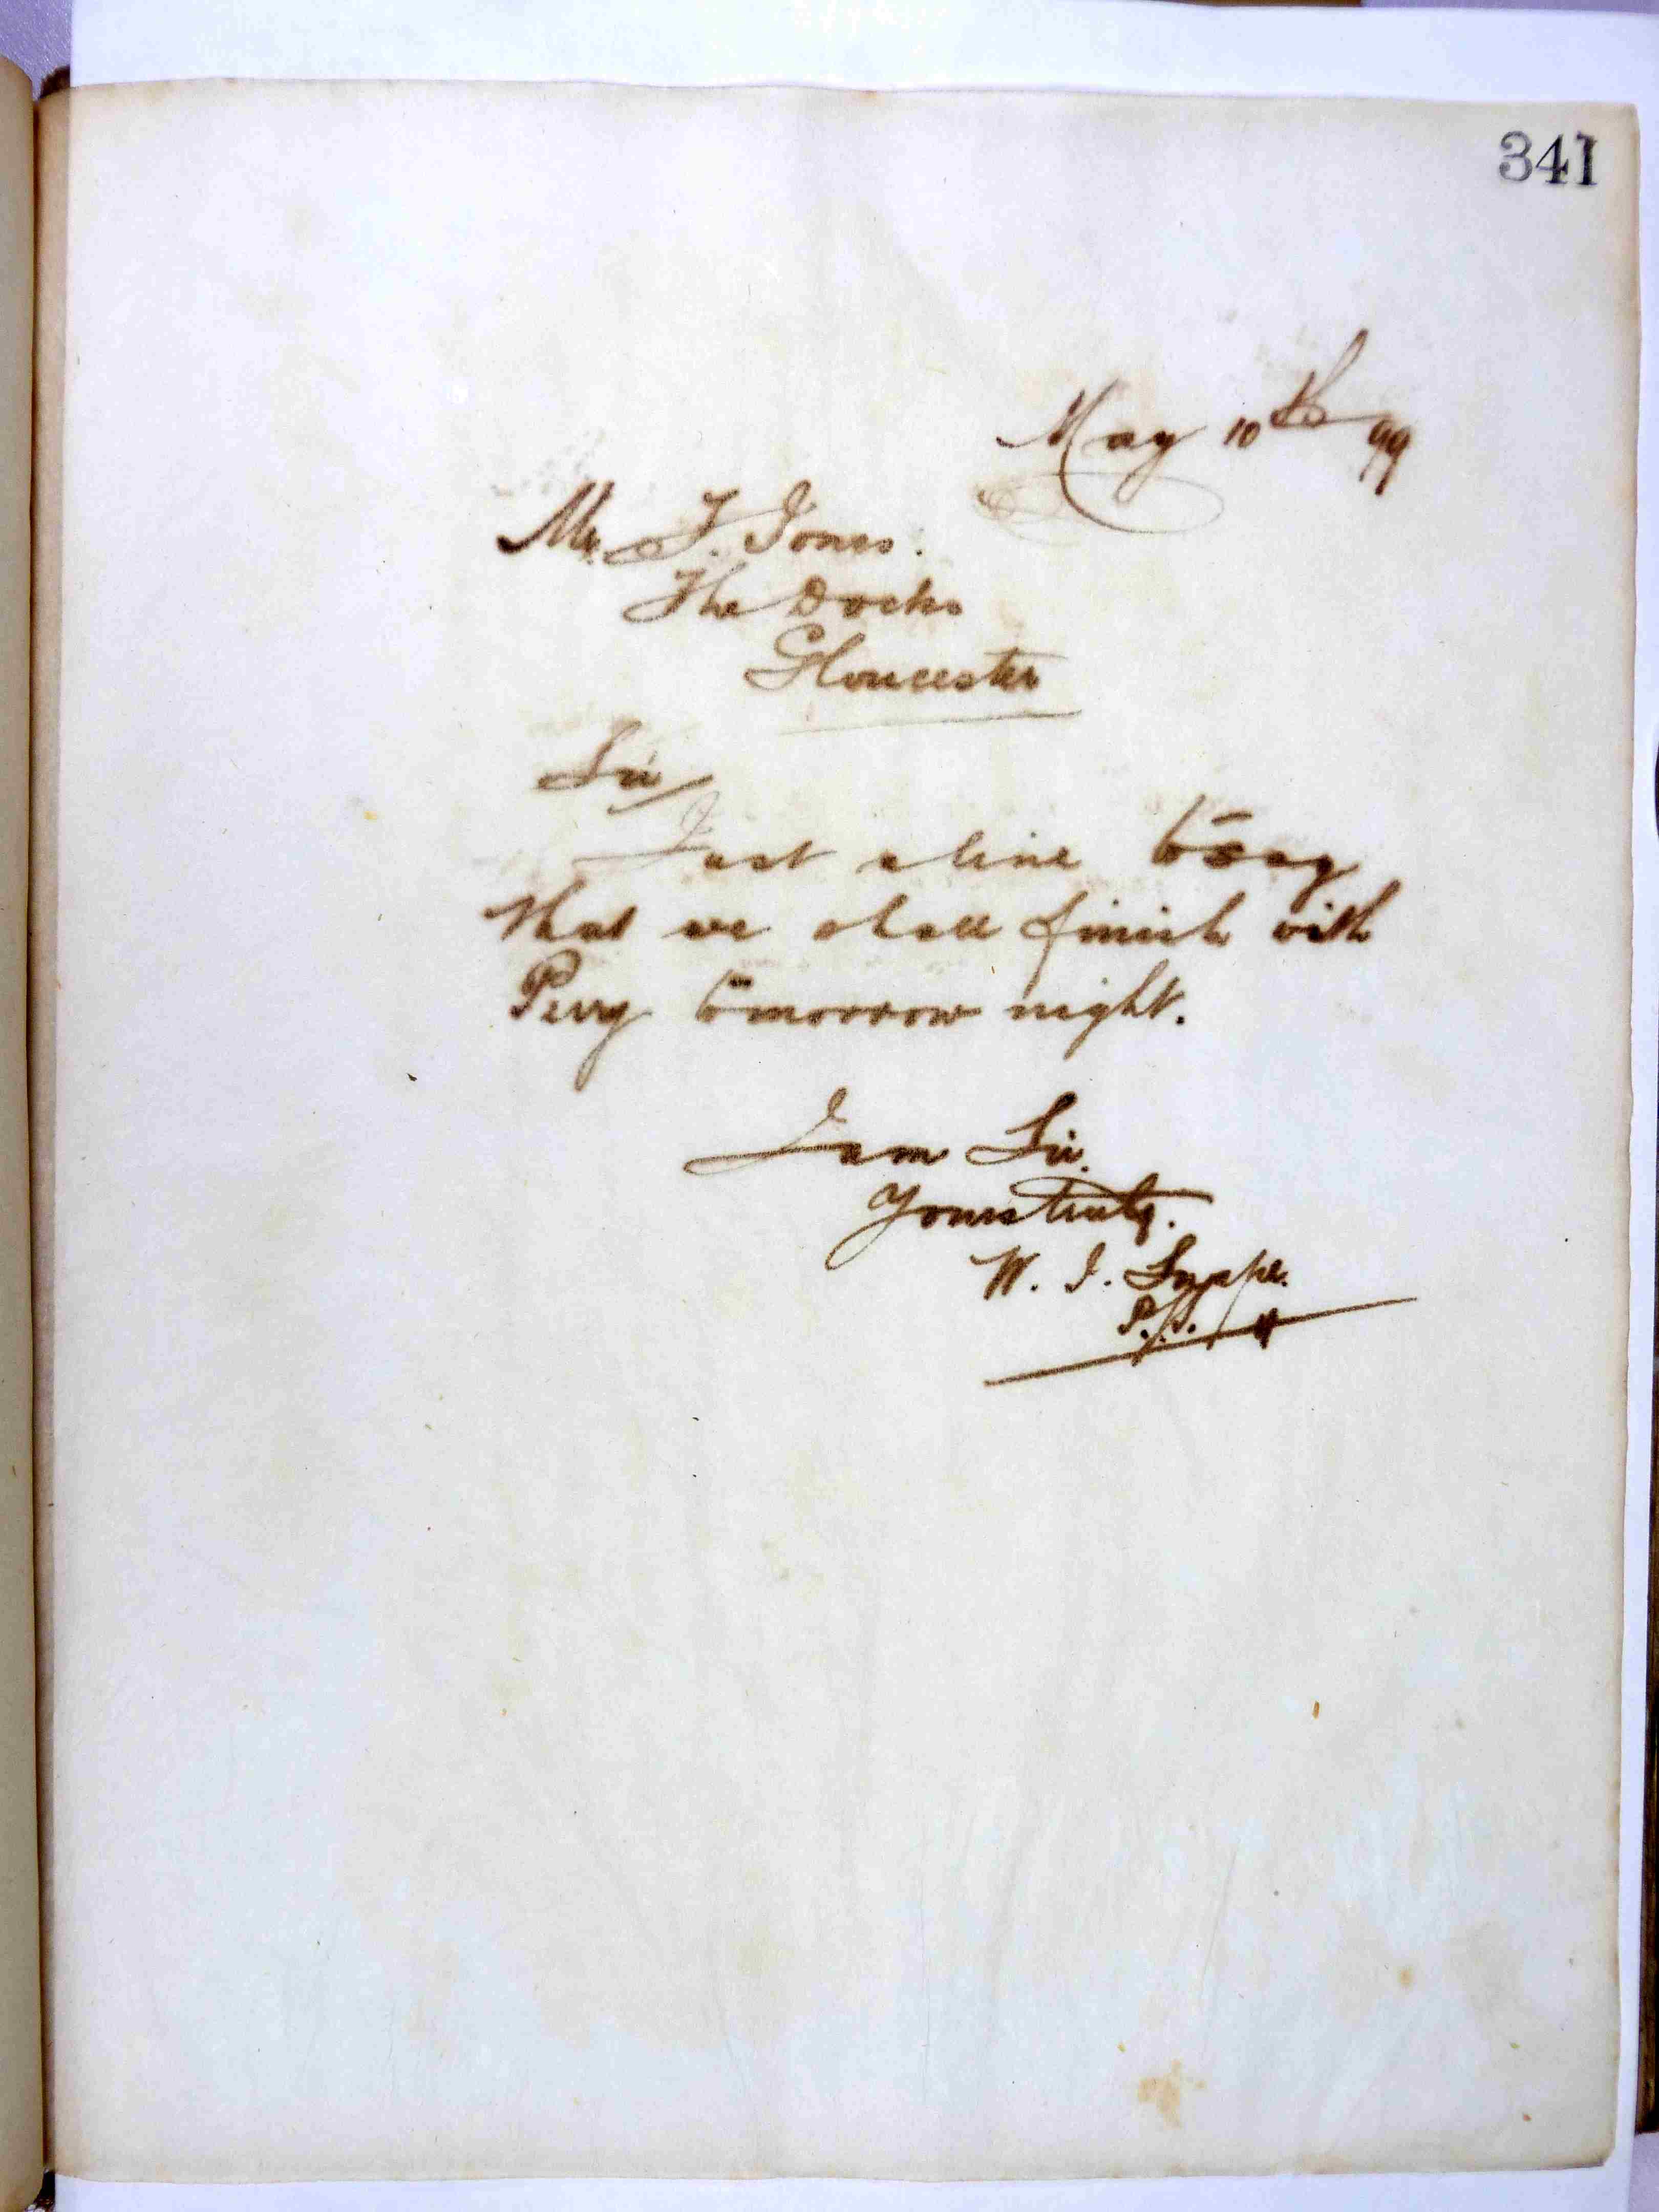 341
May 10th 99
Mr. F. Jones.
The Docks
Gloucester
Sir
Just a line to say
that we shall finish with
Perry tomorrow night.
I am Sir.
Yours truly.
W. J.